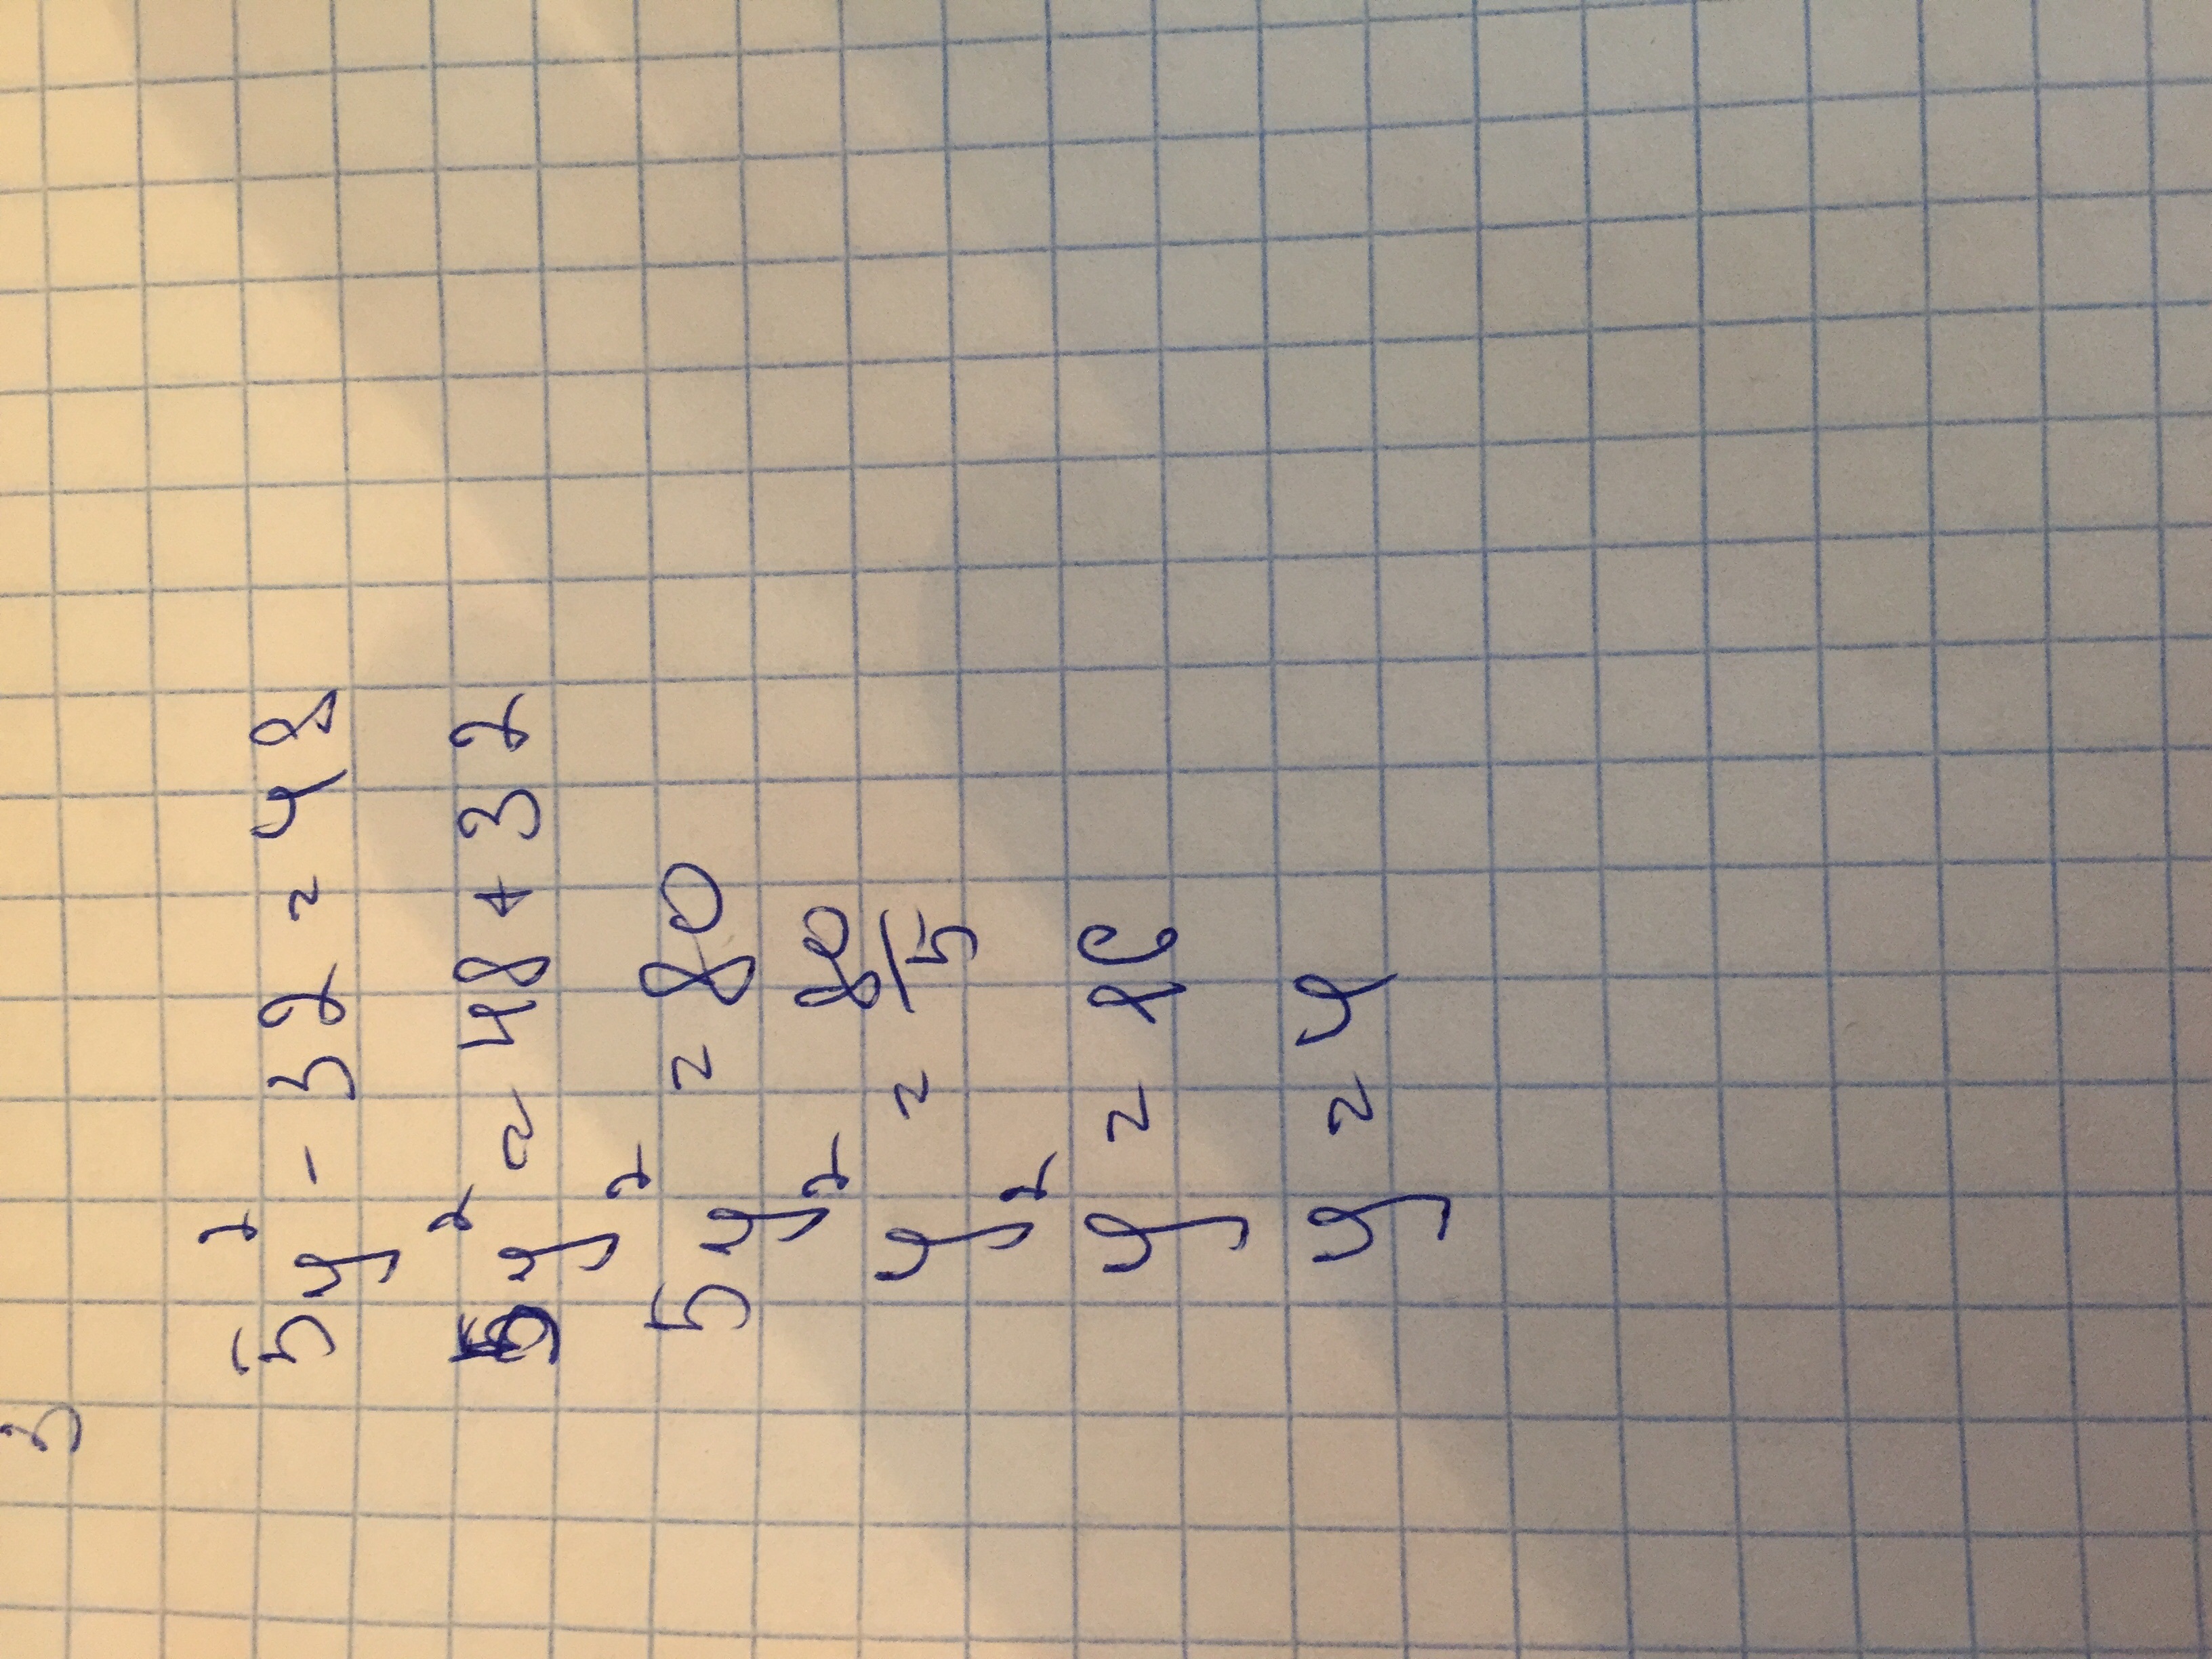 3
5y² - 32 = 48
5y² = 48 + 32
5y² = 80
y² = 80/5
y² = 16
y = 4